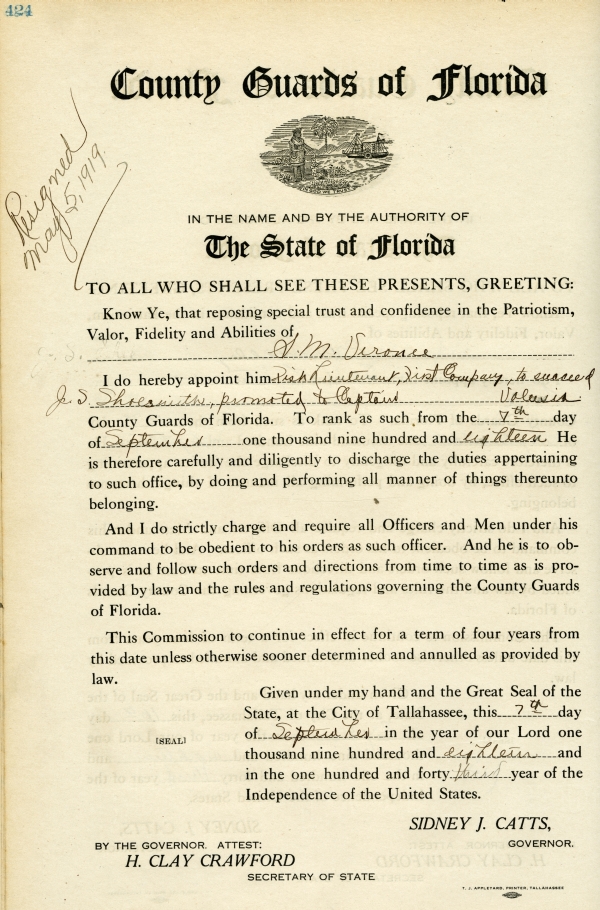 424
County Guards of Florida
Resigned
May 5, 1919.
IN THE NAME AND BY THE AUTHORITY OF
The State of Florida
TO ALL WHO SHALL SEE THESE PRESENTS, GREETING:
Know Ye, that reposing special trust and confidenee in the Patriotism,
Valor, Fidelity and Abilities of
S. M. Veronee
I do hereby appoint him First Lieutenant, First Company, to succeed
J. S. promoted to Captain Volusia
County Guards of Florida. To rank as such from the 7th day
of September one thousand nine hundred and eighteen He
is therefore carefully and diligently to discharge the duties appertaining
to such office, by doing and performing all manner of things thereunto
belonging.
And I do strictly charge and require all Officers and Men under his
command to be obedient to his orders as such officer. And he is to ob-
serve and follow such orders and directions from time to time as is pro-
vided by law and the rules and regulations governing the County Guards
of Florida.
This Commission to continue in effect for a term of four years from
this date unless otherwise sooner determined and annulled as provided by
law.
Given under my hand and the Great Seal of the
State, at the City of Tallahassee, this 7th day
of September in the year of our Lord one
[SEAL]
thousand nine hundred and eighteen and
in the one hundred and forty third year of the
Independence of the United States.
SIDNEY J. CATTS,
GOVERNOR.
BY THE GOVERNOR. ATTEST:
H. CLAY CRAWFORD
SECRETARY OF STATE
T. J. APPLEYARD, PRINTER, TALLAHASSEE